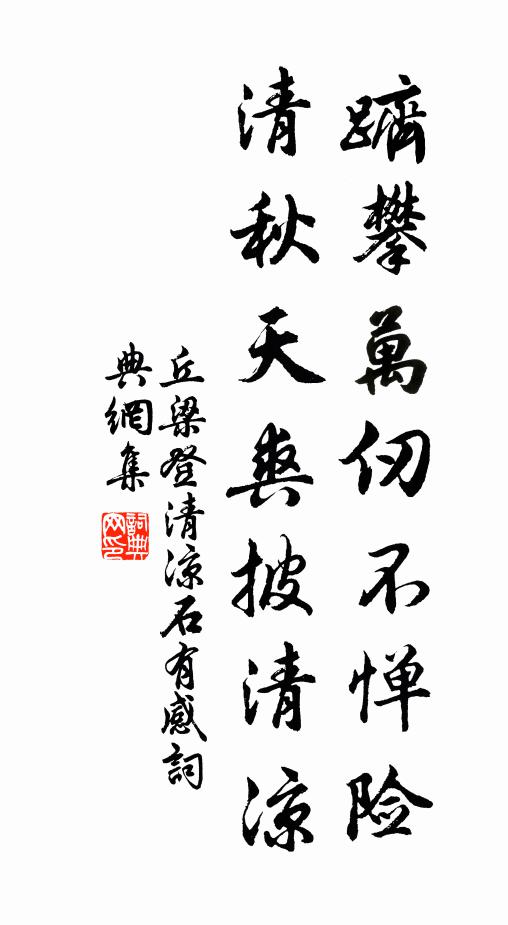 躋攀萬仞不惮险
清秋天爽披清凉
丘梁登清凉石有感詞
典網集
詞典
网印